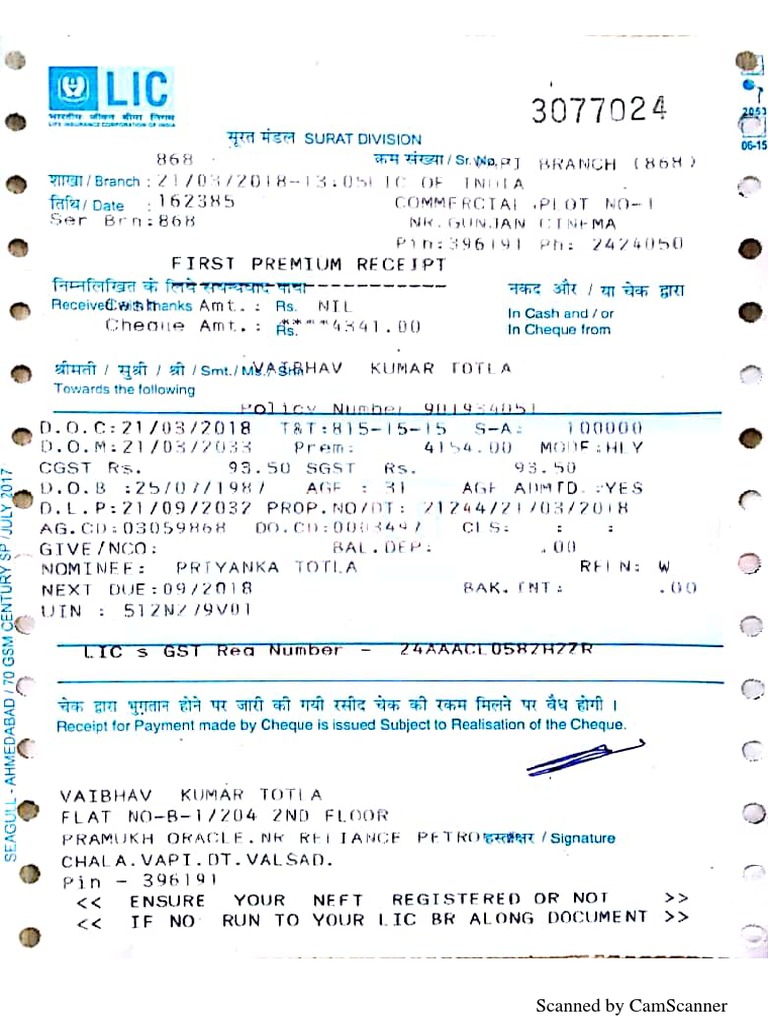 LIC
भारतीय जीवन बीमा निगम
LIFE INSURANCE CORPORATION OF INDIA
3077024
2053
06-15
सूरत मंडल SURAT DIVISION
868 क्रम संख्या / Sr. No. BRANCH (868)
शाखा / Branch : 21/03/2018-13:05LIC OF INDIA
तिथि / Date : 162385 COMMERCIAL PLOT NO-1
Ser Brn:868 NR.GUNJAN CINEMA
Pin:396191 Ph: 2424050
FIRST PREMIUM RECEIPT
निम्नलिखित के लिये सधन्यवाद पाया नकद और / या चेक द्वारा
Received with thanks Cash Amt.: Rs. NIL In Cash and / or
Cheque Amt.: Rs. ****4341.00 In Cheque from
श्रीमती / सुश्री / श्री / Smt./ Ms./ Shri VAIBHAV KUMAR TOTLA
Towards the following
Policy Number 901934051
D.O.C:21/03/2018 T&T:815-15-15 S-A: 100000
D.O.M:21/03/2033 Prem: 4154.00 MODE:HLY
CGST Rs. 93.50 SGST Rs. 93.50
D.O.B :25/07/1987 AGE : 31 AGE ADMTD.:YES
D.L.P:21/09/2032 PROP.NO/DT: 21244/21/03/2018
AG.CD:03059868 DO.CD:0003497 CLS: : :
GIVE/NCO: BAL.DEP: .00
NOMINEE: PRIYANKA TOTLA REIN: W
NEXT DUE:09/2018 BAK.INT: .00
UIN : 512N279V01
LIC s GST Reg Number - 24AAACL0582H2ZR
चेक द्वारा भुगतान होने पर जारी की गयी रसीद चेक की रकम मिलने पर वैध होगी ।
Receipt for Payment made by Cheque is issued Subject to Realisation of the Cheque.
VAIBHAV KUMAR TOTLA
FLAT NO-B-1/204 2ND FLOOR
PRAMUKH ORACLE.NR RELIANCE PETRO हस्ताक्षर / Signature
CHALA.VAPI.DT.VALSAD.
Pin - 396191
<< ENSURE YOUR NEFT REGISTERED OR NOT >>
<< IF NO RUN TO YOUR LIC BR ALONG DOCUMENT >>
SEAGULL - AHMEDABAD / 70 GSM CENTURY SP / JULY 2017
Scanned by CamScanner